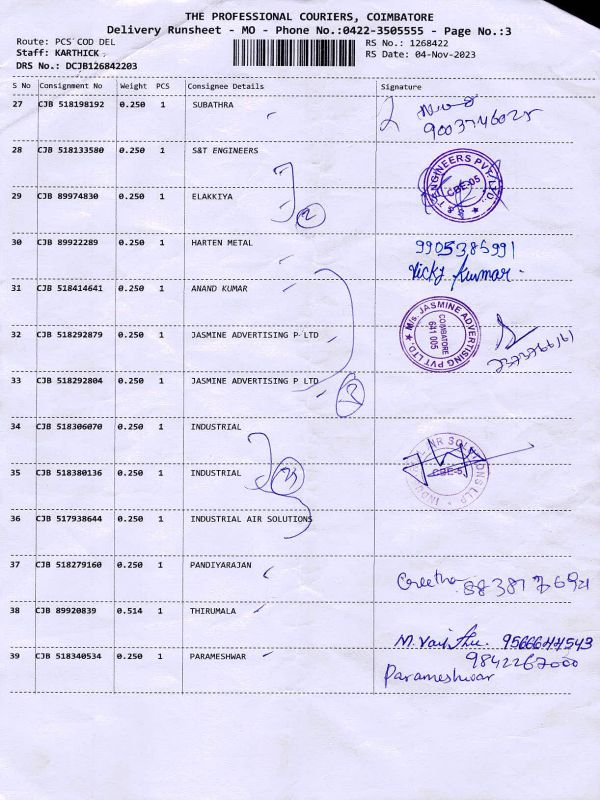 THE PROFESSIONAL COURIERS, COIMBATORE
Delivery Runsheet - MO - Phone No.:0422-3505555 - Page No.:3
Route: PCS COD DEL
RS No.: 1268422
Staff: KARTHICK
RS Date: 04-Nov-2023
DRS No.: DCJB126842203
S No Consignment No Weight PCS Consignee Details Signature
27 CJB 518198192 0.250 1 SUBATHRA
28 CJB 518133580 0.250 1 S&T ENGINEERS
S & T ENGINEERS PVT. LTD.,
CBE-05
29 CJB 89974830 0.250 1 ELAKKIYA
2
30 CJB 89922289 0.250 1 HARTEN METAL
9905385991
Vicky Kumar
31 CJB 518414641 0.250 1 ANAND KUMAR
M/s. JASMINE ADVERTISING PVT LTD.
COIMBATORE
641 005
32 CJB 518292879 0.250 1 JASMINE ADVERTISING P LTD
33 CJB 518292804 0.250 1 JASMINE ADVERTISING P LTD
3
34 CJB 518306070 0.250 1 INDUSTRIAL
35 CJB 518380136 0.250 1 INDUSTRIAL
3
36 CJB 517938644 0.250 1 INDUSTRIAL AIR SOLUTIONS
37 CJB 518279160 0.250 1 PANDIYARAJAN
Geetha 8838776921
38 CJB 89920839 0.514 1 THIRUMALA
9566644543
39 CJB 518340534 0.250 1 PARAMESHWAR
9842267000
Parameshwar